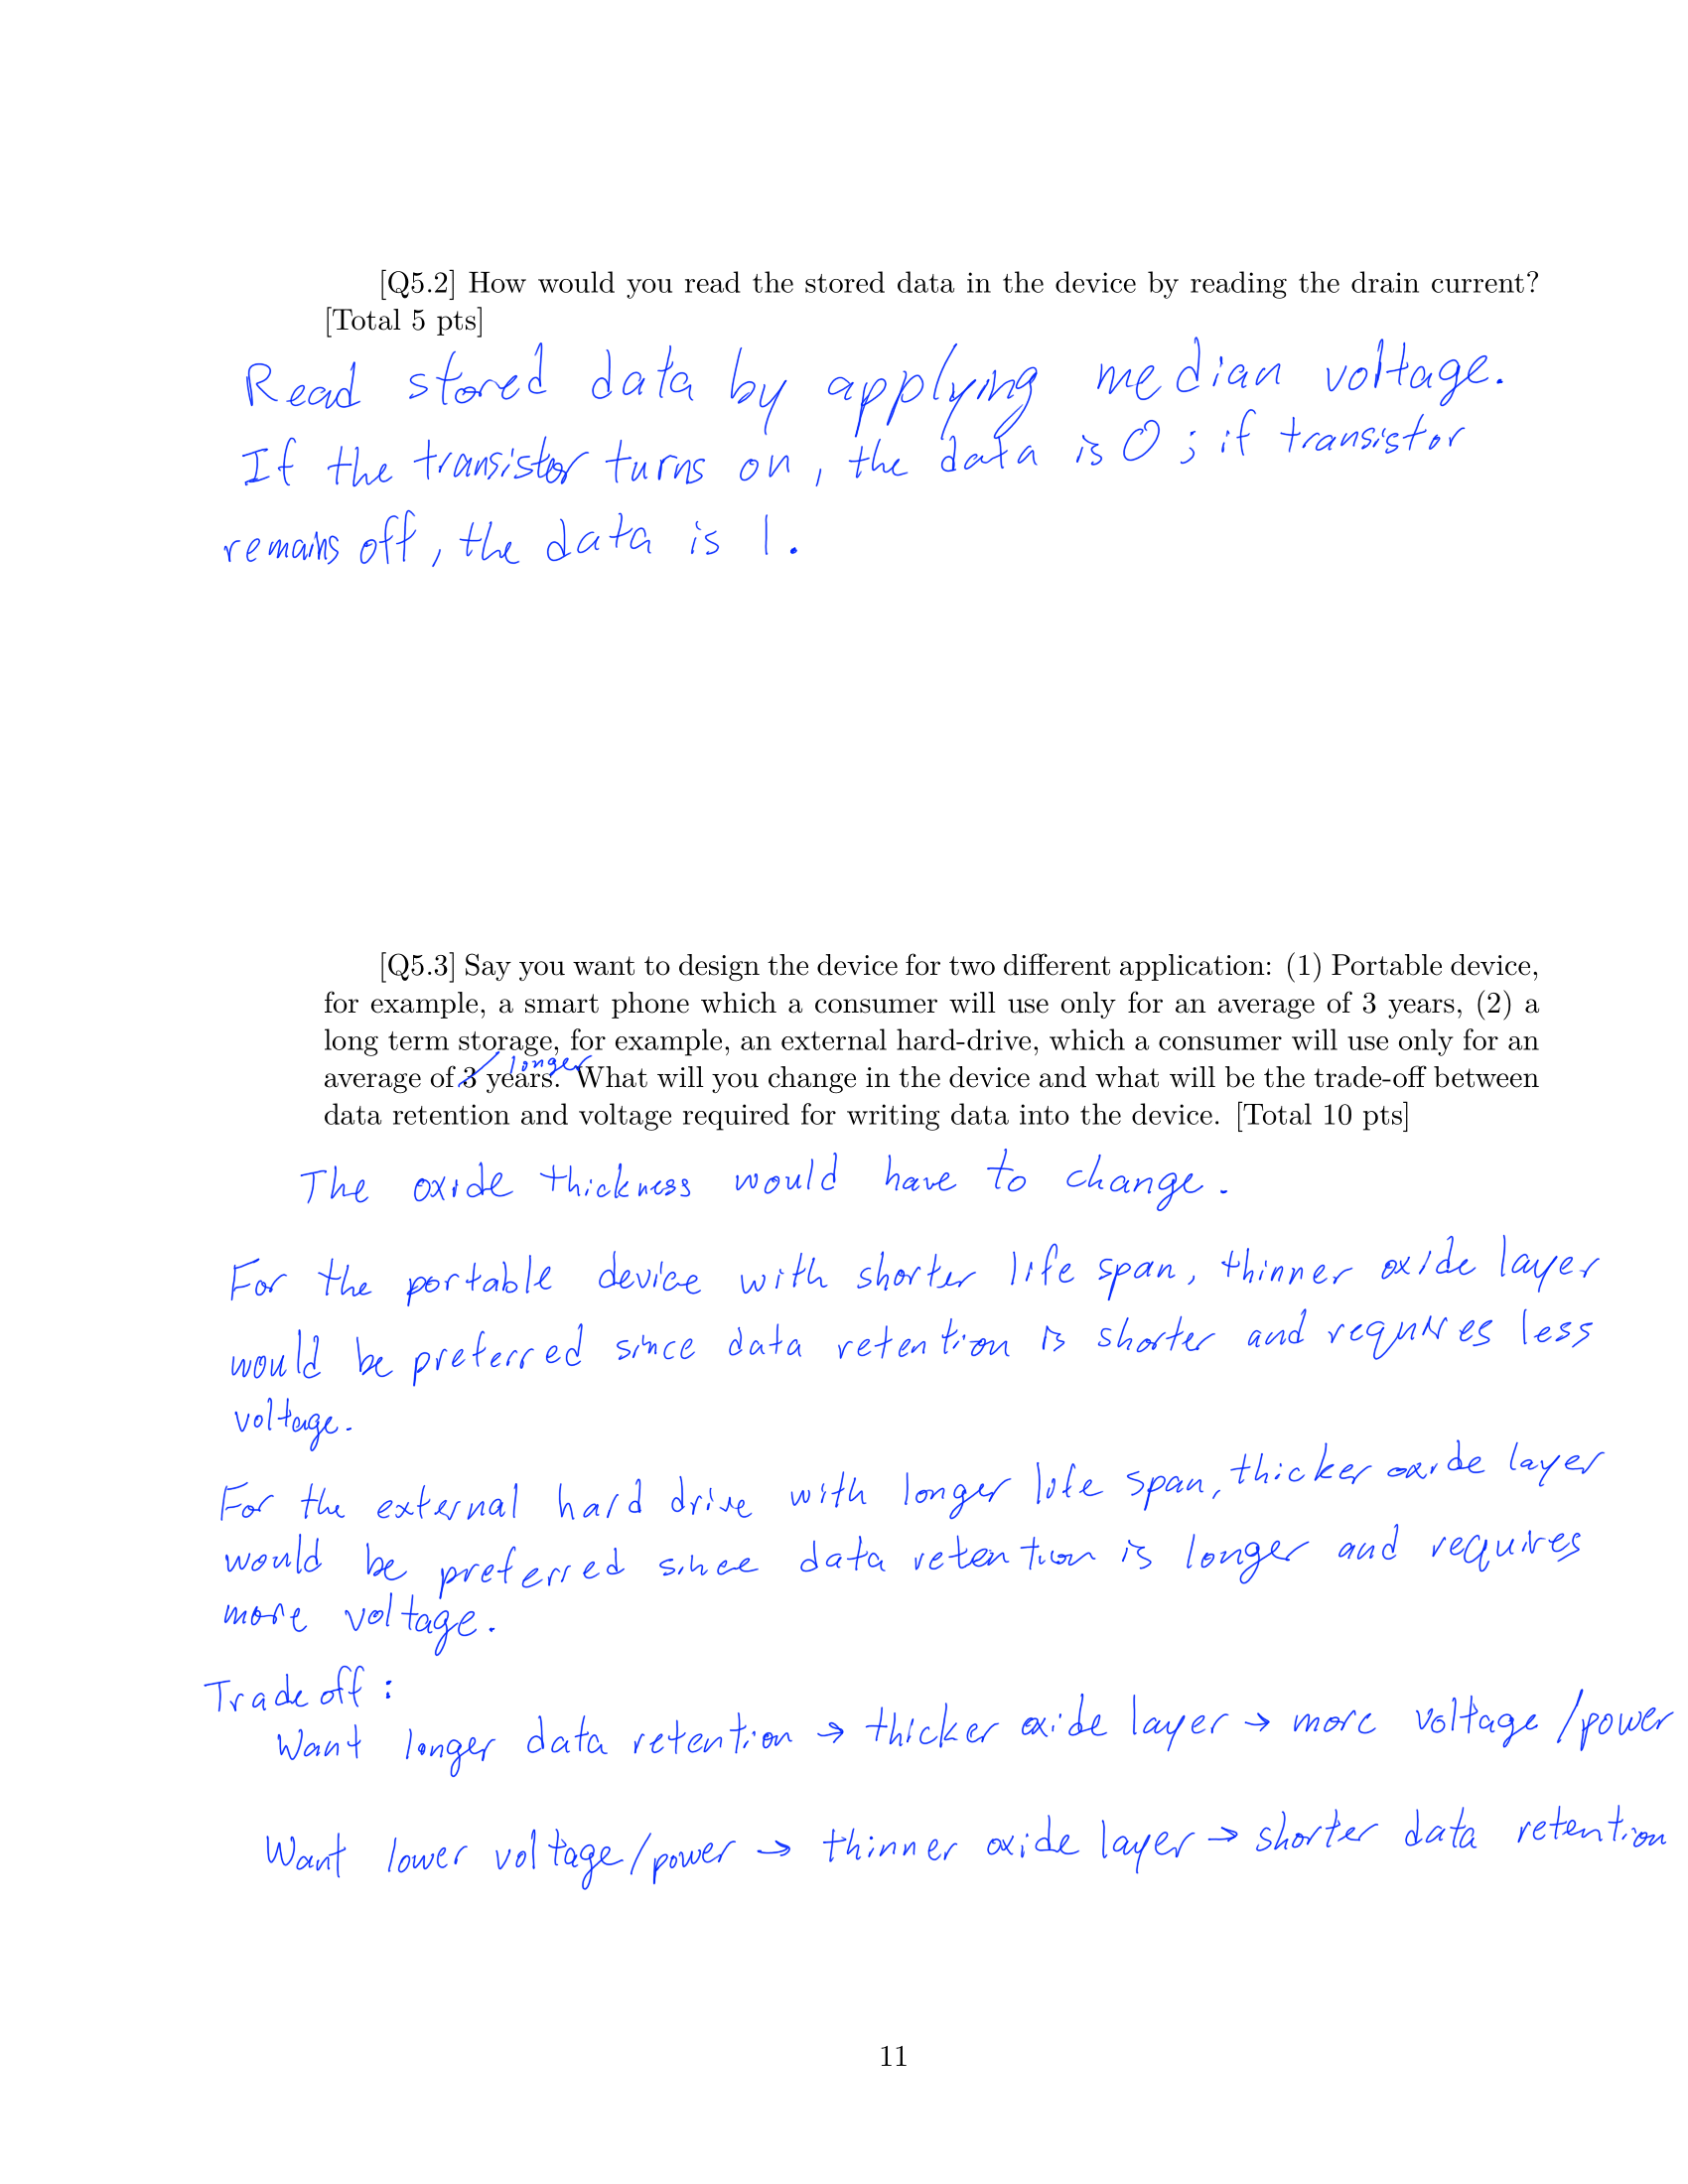 [Q5.2] How would you read the stored data in the device by reading the drain current?
[Total 5 pts]
Read stored data by applying median voltage.
If the transistor turns on, the data is 0; if transistor
remains off, the data is 1.
[Q5.3] Say you want to design the device for two different application: (1) Portable device,
for example, a smart phone which a consumer will use only for an average of 3 years, (2) a
long term storage, for example, an external hard-drive, which a consumer will use only for an
longer
average of 3 years. What will you change in the device and what will be the trade-off between
data retention and voltage required for writing data into the device. [Total 10 pts]
The oxide thickness would have to change.
For the portable device with shorter life span, thinner oxide layer
would be preferred since data retention is shorter and requires less
voltage.
For the external hard drive with longer life span, thicker oxide layer
would be preferred since data retention is longer and requires
more voltage.
Trade off:
Want longer data retention → thicker oxide layer → more voltage/power
Want lower voltage/power → thinner oxide layer → shorter data retention
11